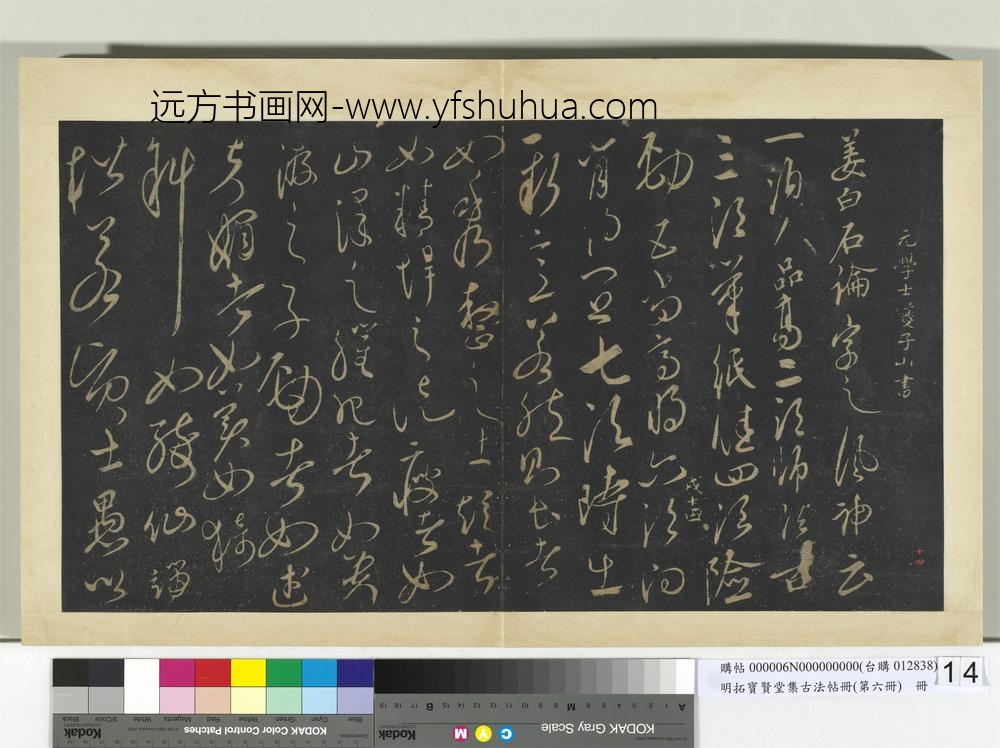 远方书画网-www.yfshuhua.com
元學士巎子山書
姜白石論字之風神云
一須人品高二須師法古
三須筆紙佳四須險
勁五須高明六須向
背得宜七須時出
新意若然則長者
如秀整之士短者
如精悍之徒瘦者如
山澤之癯肥者如貴
游之子勁者如武
夫媚者如美女欹
斜如醉仙端
楷若賢士愚以
戊十四
十四
購帖 000006N000000000(台購 012838)
明拓寶賢堂集古法帖冊(第六冊) 冊
14
Kodak Color Control Patches
Blue Cyan Green Yellow Red Magenta White 3/Color Black
KODAK Gray Scale
C Y M
Kodak
A 1 2 3 4 5 6 M 8 9 10 11 12 13 14 15 B 17 18 19